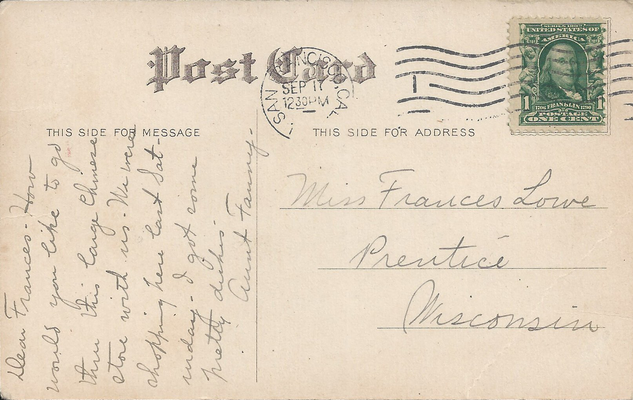 Post Card
SAN FRANCISCO, CAL
SEP 17
12 30 PM
1
SERIES 1902
UNITED STATES OF
AMERICA
1706 FRANKLIN 1790
POSTAGE
1 ONE CENT 1
THIS SIDE FOR MESSAGE
THIS SIDE FOR ADDRESS
Dear Frances- How
would you like to go
thru this large Chinese
store with us. We were
shopping here last Sat-
urday- I got some
pretty dishes-
Aunt Fanny-
Miss Frances Lowe
Prentice
Wisconsin